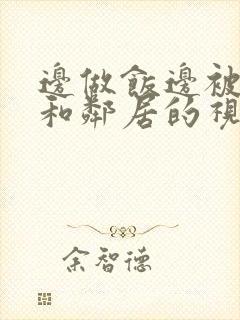 邊做飯邊被
和鄰居的視
余智德